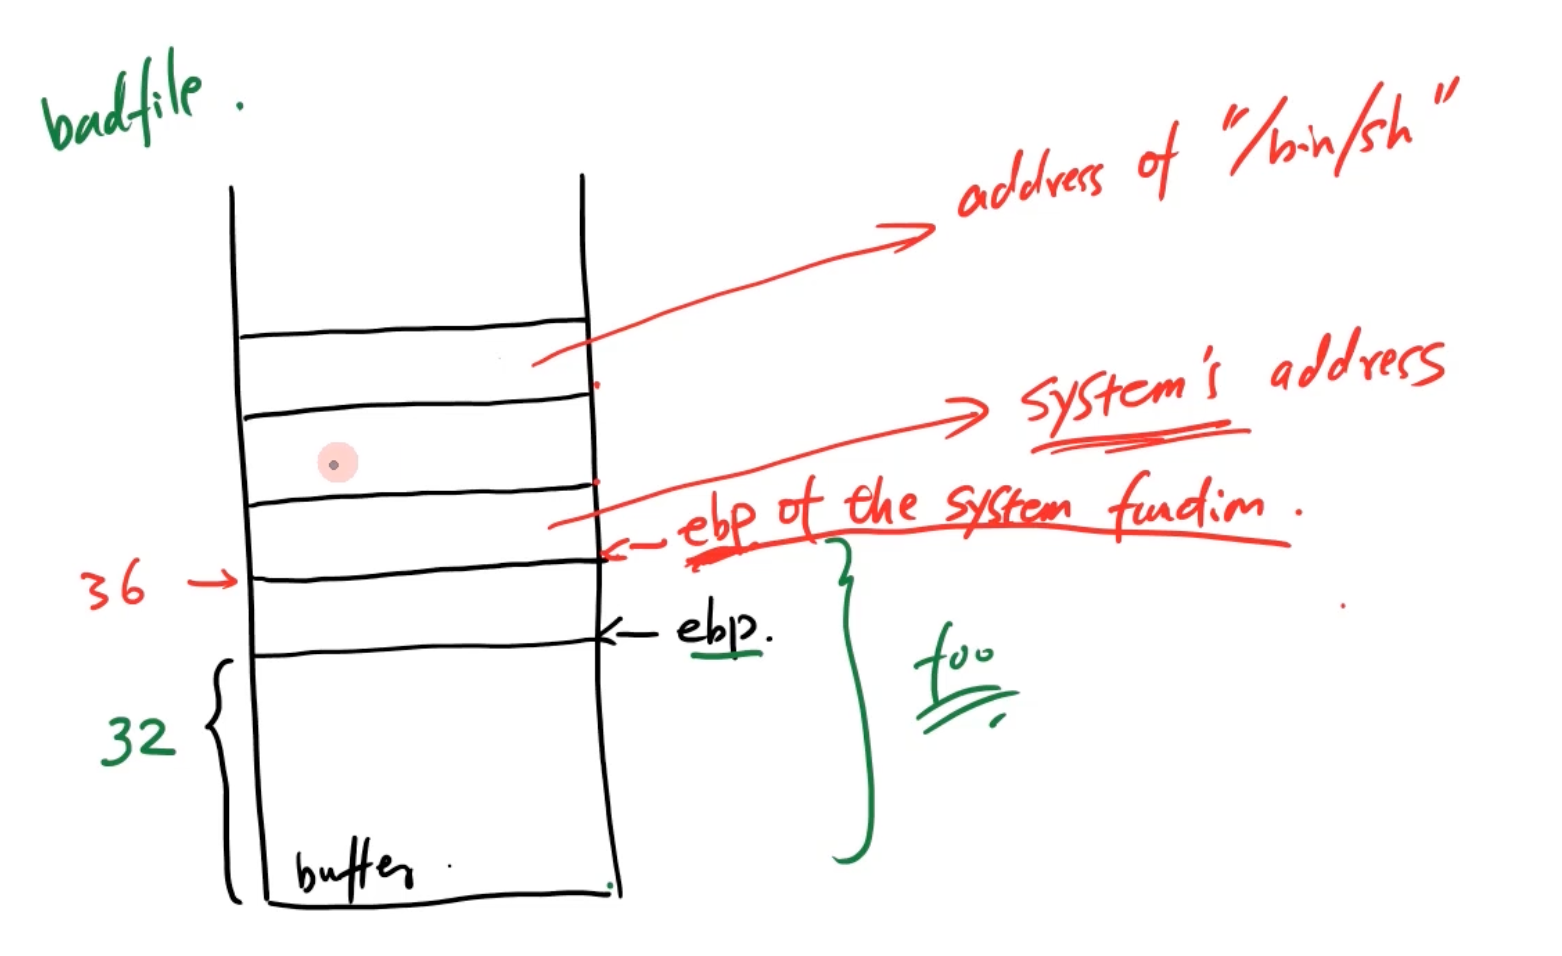 badfile.
address of "/bin/sh"
system's address
ebp of the system function.
36
ebp.
foo
32
buffer